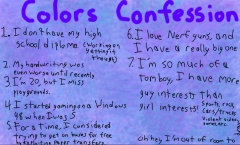 Colors Confession
1. I don't have my high
school diploma (Working on
getting it
though)
2. My handwriting was
even worse until recently.
3. I'm 20, but I miss
playgrounds.
4. I started gaming on Windows
98 when I was 5
5. For a time, I considered
trying to get on hours for free
transfers
6. I love Nerf guns, and
I have a really big one
7. I'm so much of a
tomboy, I have more
guy interests than
girl interests!
Sports, rock,
Cars/trucks
Violent video
games, etc.
Oh hey, I'm out of room to